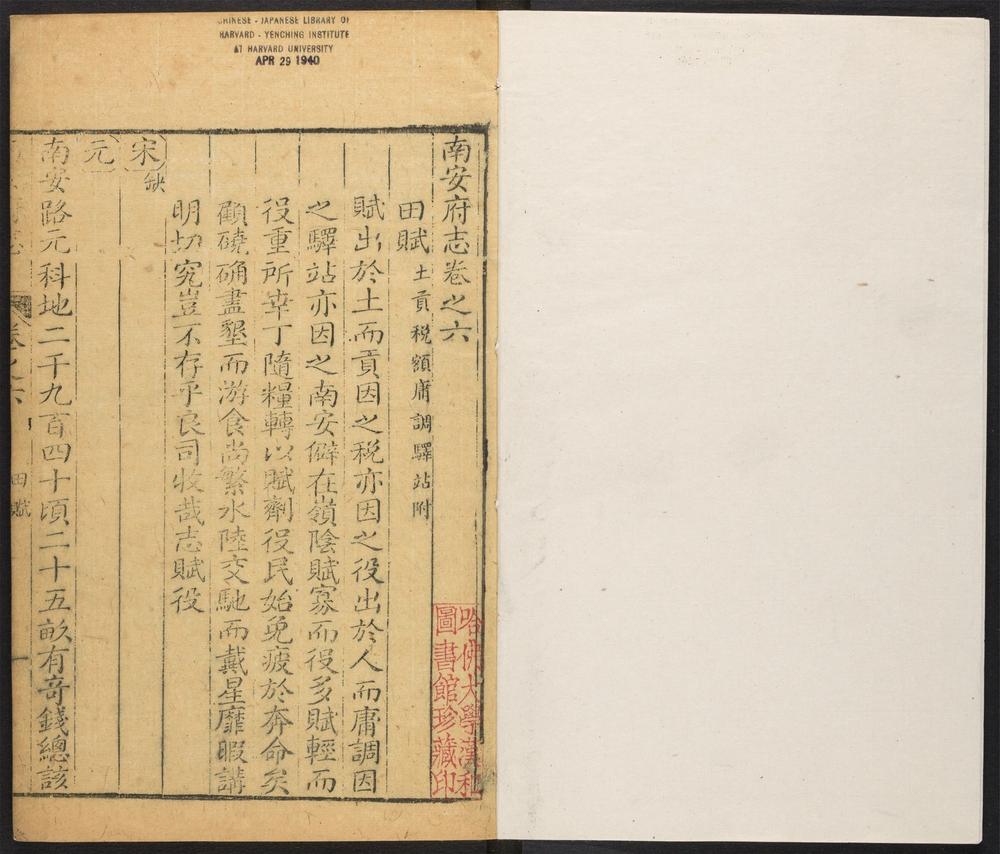 CHINESE - JAPANESE LIBRARY OF
HARVARD - YENCHING INSTITUTE
AT HARVARD UNIVERSITY
APR 29 1940
南安府志卷之六
哈佛大學漢和
圖書館珍藏印
田賦 土貢稅額庸調驛站附
賦出於土而貢因之稅亦因之役出於人而庸調因
之驛站亦因之南安僻在嶺陰賦寡而役多賦輕而
役重所幸丁隨糧轉以賦劑役民始免疲於奔命矣
顧磽确盡墾而游食尚繁水陸交馳而戴星靡暇講
明切究豈不存乎良司牧哉志賦役
宋 缺
元
南安路元科地二千九百四十頃二十五畝有奇錢總該
卷之六 田賦 一